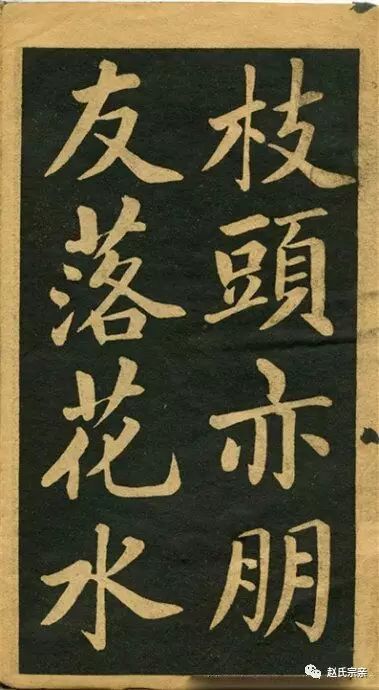 枝頭亦朋
友落花水
赵氏宗亲